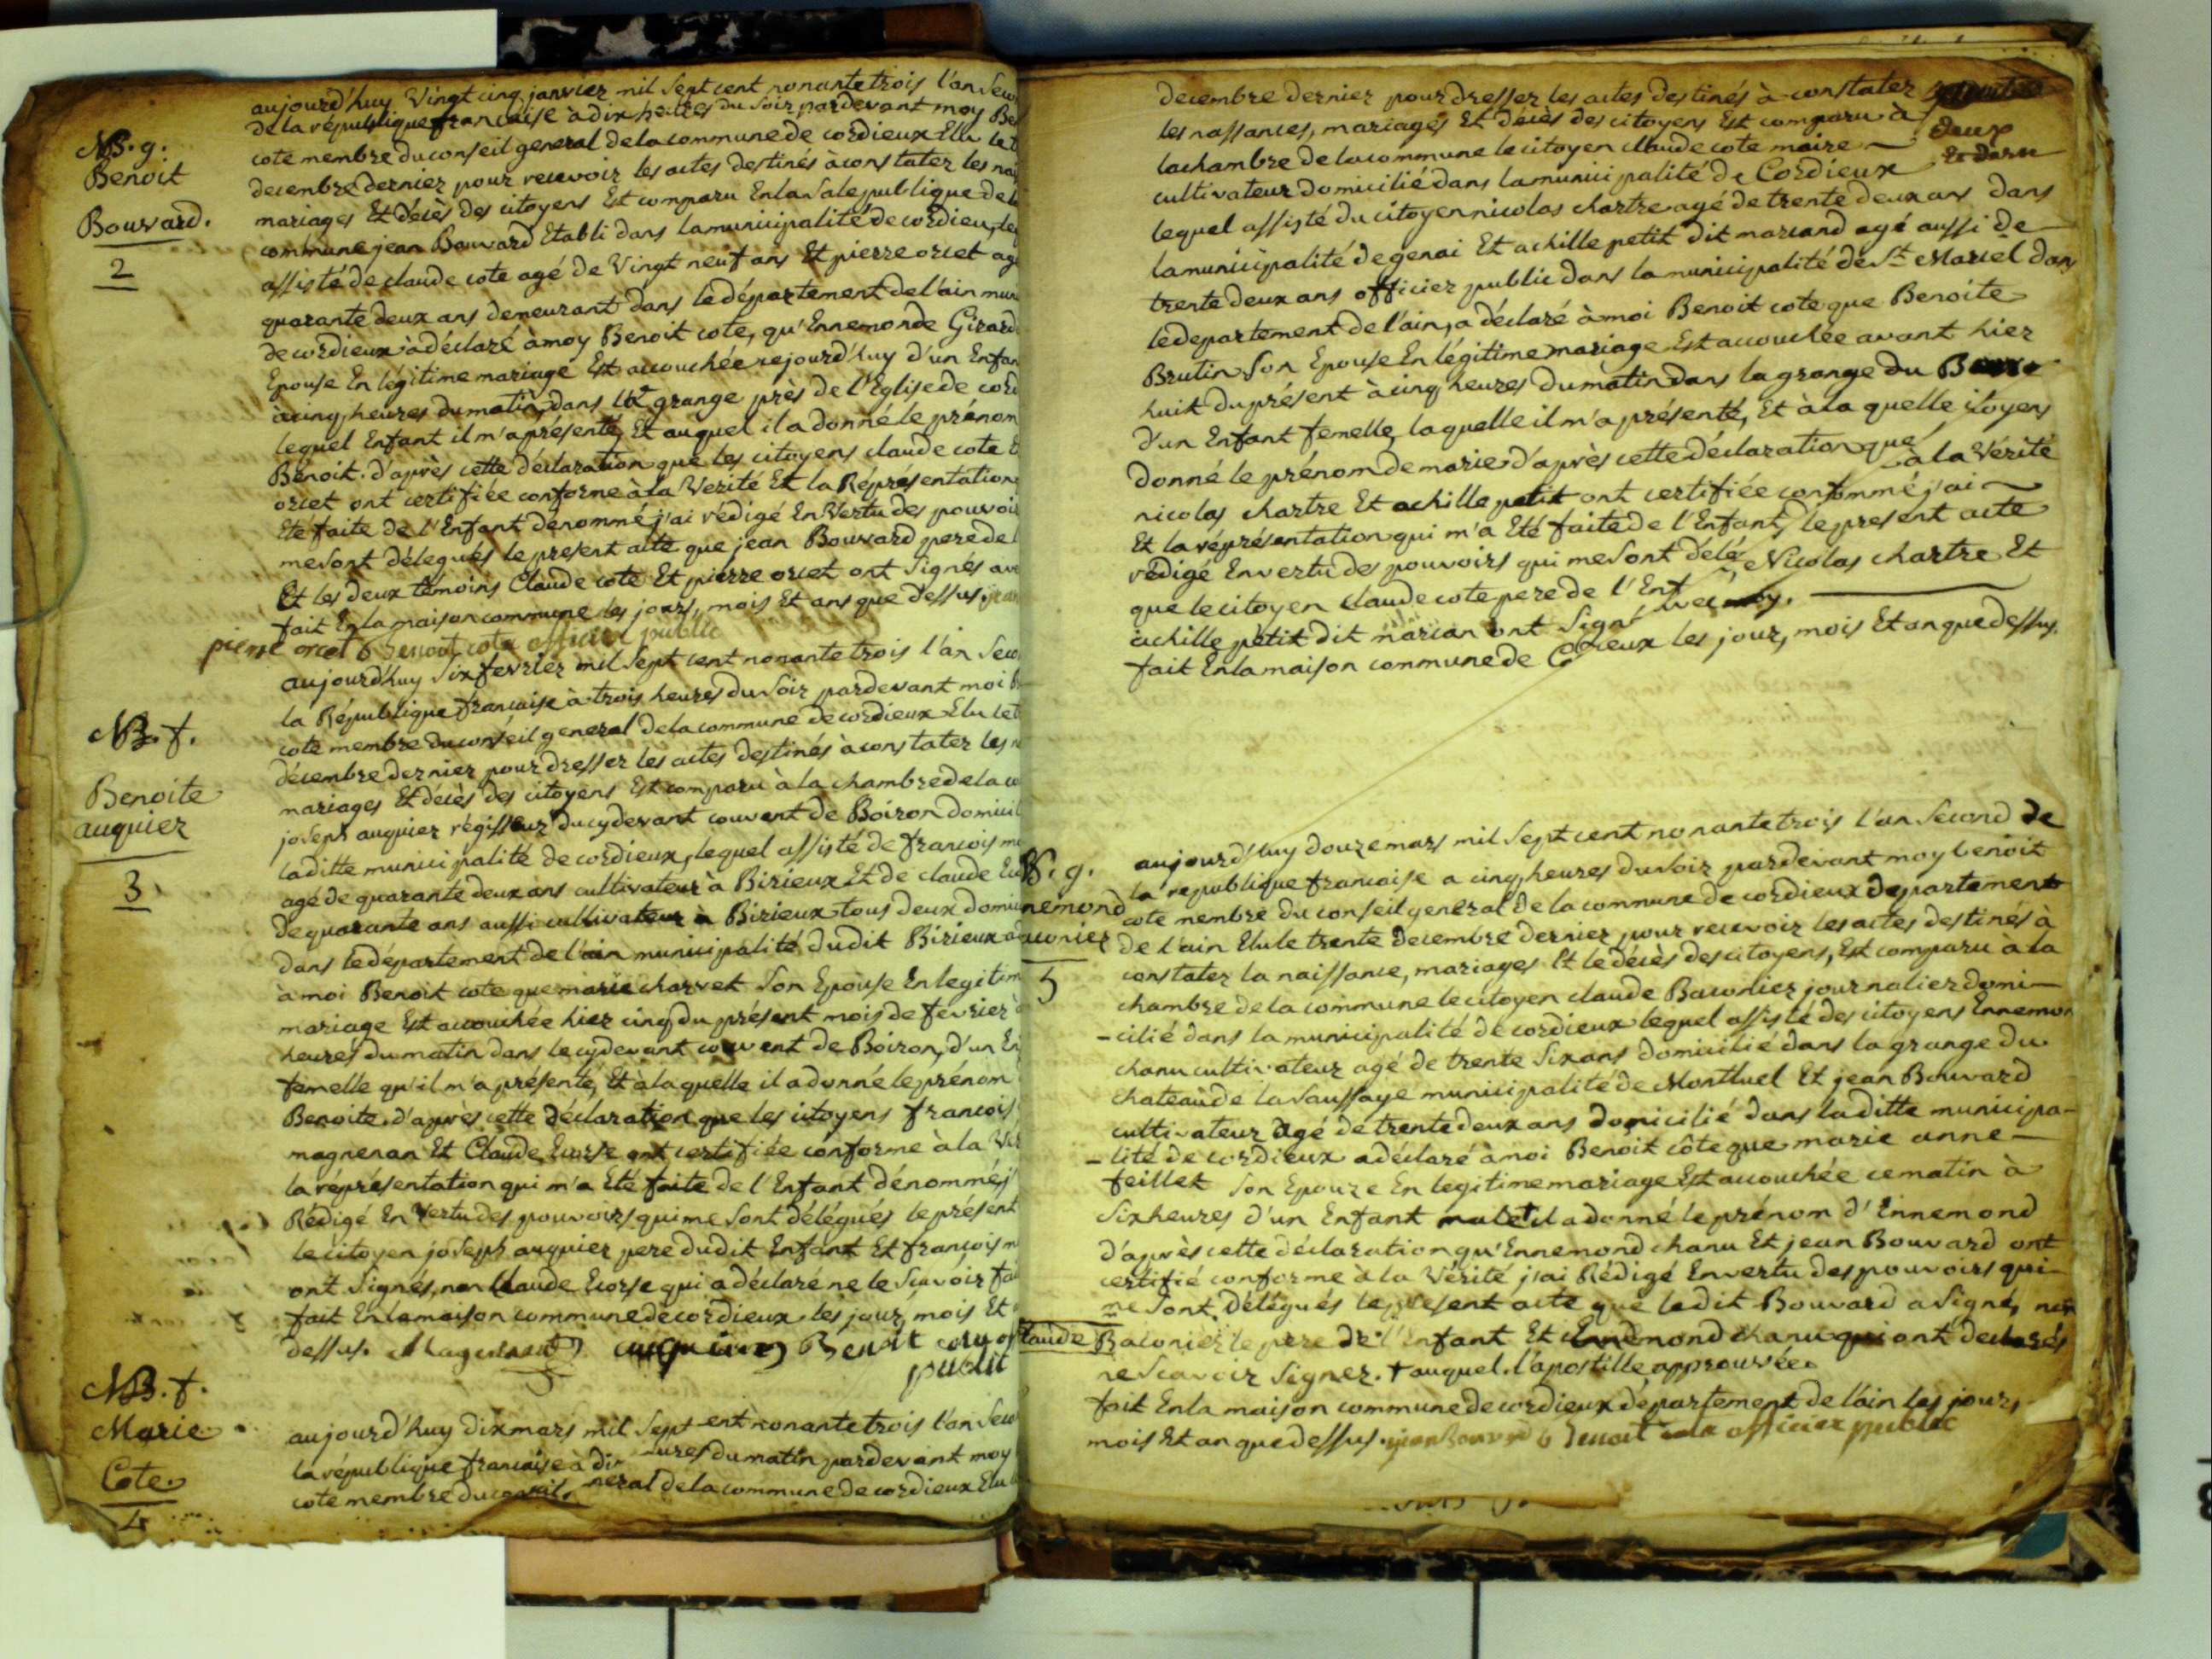 N.B. g.
Benoit
Bouvard.
2
aujourd'huy Vingt cinq janvier mil Sept cent nonante trois l'an Seco
de la république francaise à dix heures du Soir pardevant moy Be
cote membre du conseil general de la commune de cordieux Elu le t
decembre dernier pour recevoir les actes destinés à constater les nai
mariages Et décès des citoyens Est comparu En la Sale publique de l
commune jean Bouvard Etabli dans la municipalité de cordieu, leq
assisté de claude cote agé de Vingt neuf ans Et pierre orcet ag
quarante deux ans demeurant dans le département de l'ain muni
de cordieux à déclaré à moy Benoit cote, qu'Ennemonde Girard
Epouse En légitime mariage Est accouchée cejourd'huy d'un Enfan
à cinq heures du matin, dans la grange près de l'Eglise de cord
lequel Enfant il m'a présenté, Et auquel il a donné le prénom
Benoit. d'après cette déclaration que les citoyens claude cote E
orcet ont certifiée conforme à la Verité Et la Réprésentation
Eté faite de l'Enfant dénommé j'ai rédigé En Vertu des pouvoi
me Sont délegués le present acte que jean Bouvard pere de l
Et les deux témoins Claude cote Et pierre orcet ont Signés ave
fait En la maison commune les jours, mois Et ans que dessus. jean
pierre orcet Benoit cote officier public
N.B. f.
Benoite
auquier
3
aujourd'huy Six fevrier mil Sept cent nonante trois l'an Seco
la République francaise à trois heures du Soir pardevant moi B
cote membre du conseil general de la commune de cordieux Elu le t
décembre dernier pour dresser les actes destinés à constater les n
mariages Et décès des citoyens Est comparu à la chambre de la co
joseph auquier régisseur du cydevant couvent de Boiron domicil
laditte municipalité de cordieux, lequel assisté de francois m
agé de quarante deux ans cultivateur à Birieux Et de claude Ec
de quarante ans aussi cultivateur à Birieux tous deux domi
dans le département de l'ain municipalité dudit Birieux a d
à moi Benoit cote que marie charvet Son Epouse En legitim
mariage Est accouchée hier cinq du présent mois de fevrier à
heures du matin dans le cydevant couvent de Boiron, d'un En
femelle qu'il m'a présenté, Et à laquelle il a donné le prénom
Benoite. d'après cette déclaration que les citoyens francois
magnenan Et Claude Ecorse ont certifiée conforme à la Vér
la réprésentation qui m'a Eté faite de l'Enfant dénommé j'
Rédigé En Vertu des pouvoirs qui me Sont délégués le présent
le citoyen joseph auquier pere dudit Enfant Et françois m
ont Signés, non Claude Ecorse qui a déclaré ne le Scavoir fai
fait En la maison commune de cordieux les jour, mois Et
dessus. Magnenand auquier Benoit cote of
public
N.B. f.
Marie
Cote
4
aujourd'huy dix mars mil Sept ent nonante trois l'an Seco
la république francaise à di ures du matin pardevant moy
cote membre du conseil neral de la commune de cordieux Elu
decembre dernier pour dresser les actes destinés à constater
les nassances, mariages Et décès des citoyens Est comparu à
deux
la chambre de la commune le citoyen claude cote maire
cultivateur domicilié dans la municipalité de Cordieux
lequel assisté du citoyen nicolas chartre agé de trente deux ans dans
la municipalité de genai Et achille petit dit marcand agé aussi de
trente deux ans officier public dans la municipalité de St. Marcel dans
le departement de l'ain, a déclaré à moi Benoit cote que Benoite
Brutin Son Epouse En légitime mariage Est accouchée avant hier
huit du présent à cinq heures du matin dans la grange du
d'un Enfant femelle, laquelle il m'a présenté, Et à la quelle
donné le prénom de marie d'après cette déclaration que citoyens
nicolas chartre Et achille petit ont certifiée conf à la Vérité
Et la réprésentation qui m'a Eté faite de l'Enfant ommé j'ai
rédigé En vertu des pouvoirs qui me Sont délé le present acte
que le citoyen claude cote pere de l'Enf Nicolas chartre Et
achille petit dit marcan ont Signé avec moy.
fait En la maison commune de C dieux les jour, mois Et an que dessus.
B. g.
nemond
conier
5
aujourd'huy douze mars mil Sept cent nonante trois l'an Second de
la république francaise a cinq heures du Soir pardevant moy benoit
cote membre du conseil general de la commune de cordieux departement
de l'ain Elu le trente Decembre dernier pour recevoir les actes destinés à
constater la naissance, mariages Et le décès des citoyens, Est comparu à la
chambre de la commune le citoyen claude Baconier journalier domi-
-cilié dans la municipalité de cordieux lequel assisté des citoyens Ennemon
chanu cultivateur agé de trente Six ans domicilié dans la grange du
chateau de la Saussaye municipalité de Montluel Et jean Bouvard
cultivateur agé de trente deux ans domicilié dans laditte municipa-
-lité de cordieux a déclaré à moi Benoit côte que marie anne
feillet Son Epouze En legitime mariage Est accouchée ce matin à
Six heures d'un Enfant male † il a donné le prénom d'Ennemond
d'après cette déclaration qu'Ennemond chanu Et jean Bouvard ont
certifié conforme à la Vérité j'ai Rédigé En vertu des pouvoirs qui
me Sont délégués le present acte que ledit Bouvard a Signé, non
laude Baconier le pere de l'Enfant Et Ennemond chanu qui ont declarés
ne Scavoir Signer. † auquel. l'apostille approuvée.
fait En la maison commune de cordieux département de l'ain les jours,
mois Et an que dessus. jean Bouvard Benoit cote officier public